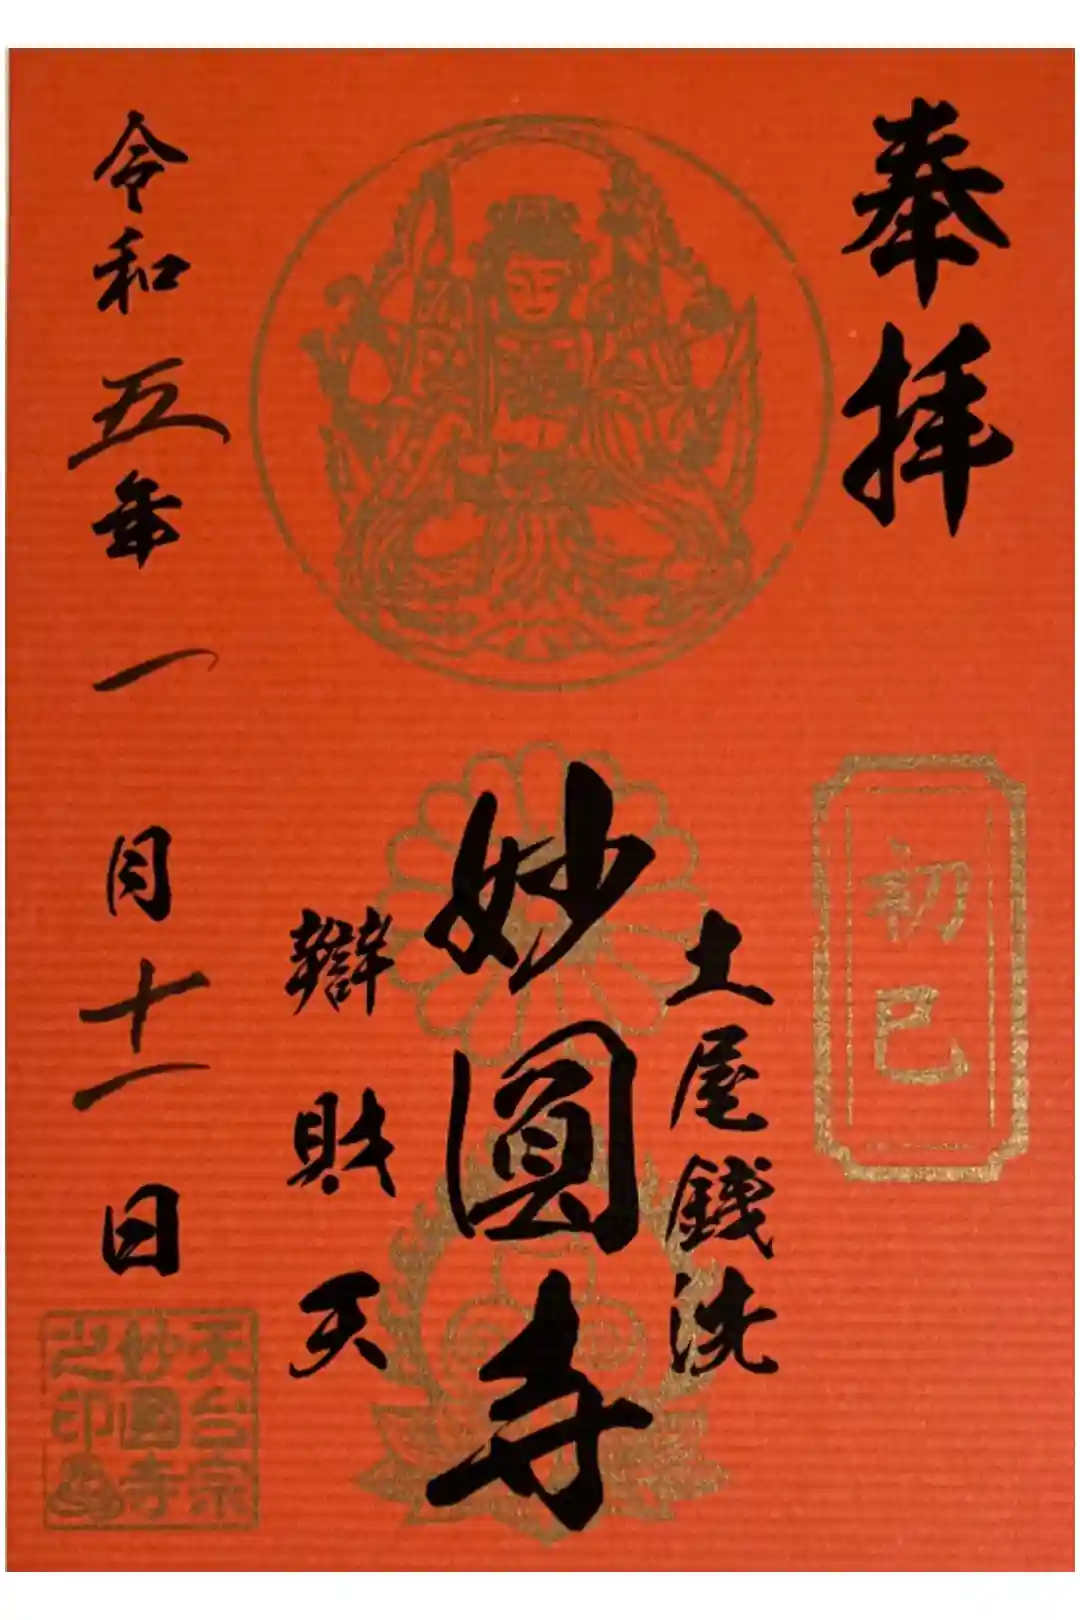 奉拝
初巳
土屋銭洗
妙圓寺
辯財天
令和五年一月十一日
天台宗
妙圓寺
之印